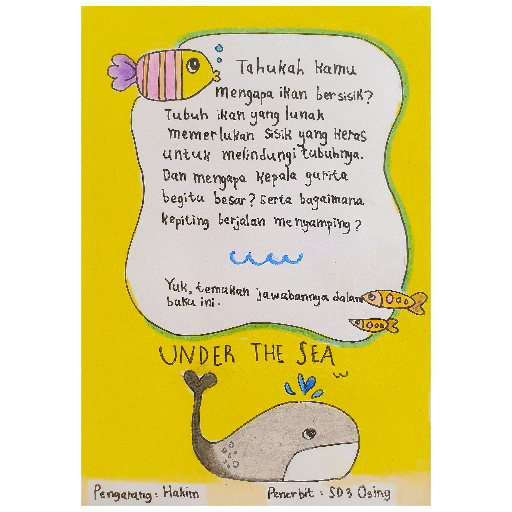 Tahukah kamu
mengapa ikan bersisik?
Tubuh ikan yang lunak
memerlukan sisik yang keras
untuk melindungi tubuhnya.
Dan mengapa kepala gurita
begitu besar? serta bagaimana
kepiting berjalan menyamping?
Yuk, temukan jawabannya dalam
buku ini.
UNDER THE SEA
Pengarang: Hakim
Penerbit: SD3 Osing